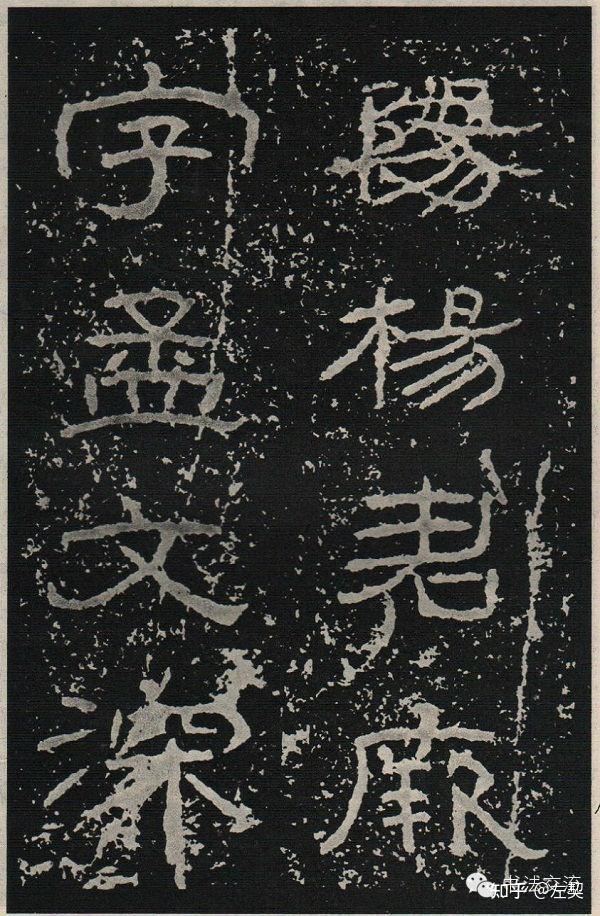 陽楊君厥
字孟文深
书法交流
知乎 @左奕